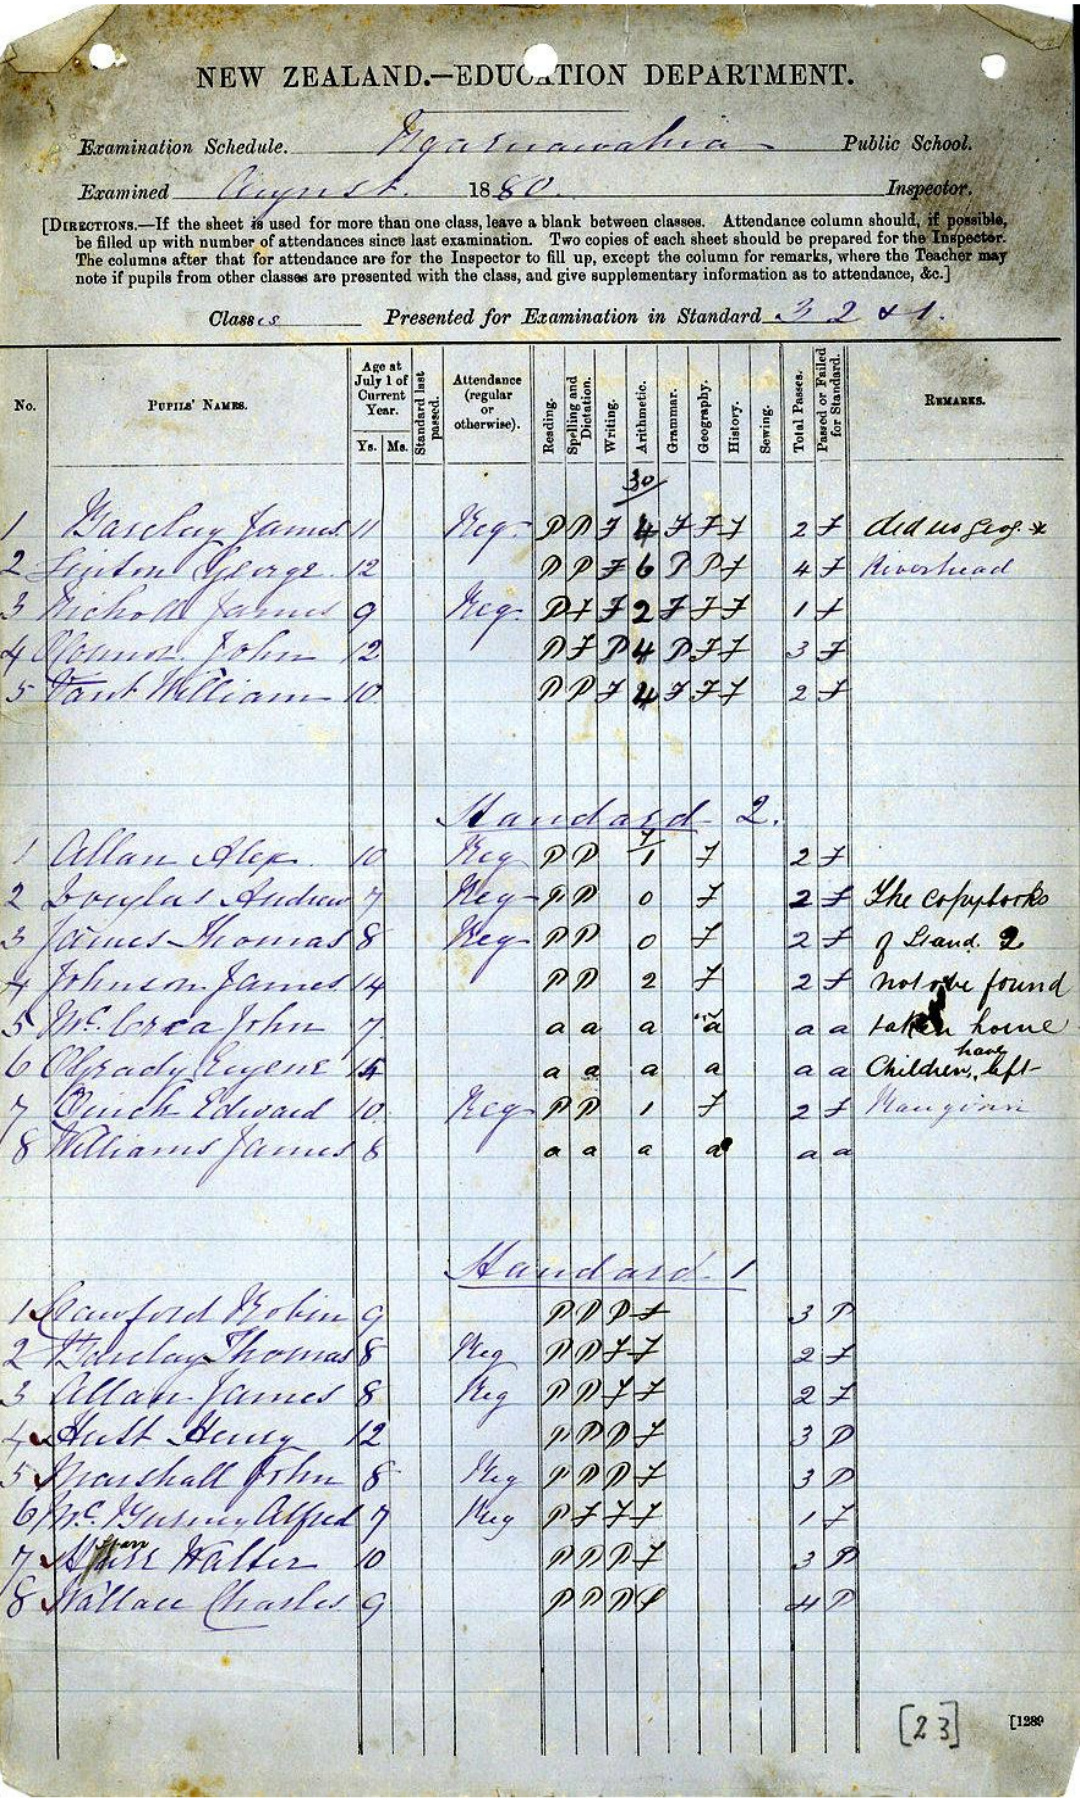 NEW ZEALAND.—EDUCATION DEPARTMENT.
Examination Schedule. Ngaruawahia Public School.
Examined August. 1880. Inspector.
[DIRECTIONS.—If the sheet is used for more than one class, leave a blank between classes. Attendance column should, if possible,
be filled up with number of attendances since last examination. Two copies of each sheet should be prepared for the Inspector.
The columns after that for attendance are for the Inspector to fill up, except the column for remarks, where the Teacher may
note if pupils from other classes are presented with the class, and give supplementary information as to attendance, &c.]
Classes Presented for Examination in Standard 3 2 & 1.
No. PUPILS' NAMES. Age at July 1 of Current Year. Ys. Ms. Standard last passed. Attendance (regular or otherwise). Reading. Spelling and Dictation. Writing. Arithmetic. Grammar. Geography. History. Sewing. Total Passes. Passed or Failed for Standard. REMARKS.
30
1 Barclay James 11 Reg. P P F 4 F F F 2 F did no geog. *
2 Linton George 12 P P F 6 P P F 4 F Riverhead
3 Nicholl James 9 Reg. P F F 2 F F F 1 F
4 OConnor John 12 P F P 4 P F F 3 F
5 Vant William 10 P P F 4 F F F 2 F
Standard 2.
1 Allan Alex. 10 Reg P P 1 F 2 F
2 Douglas Andrew 7 Reg P P 0 F 2 F The copybooks
3 James Thomas 8 Reg P P 0 F 2 F of Stand. 2
4 Johnson James 14 P P 2 F 2 F not to be found
5 McCrea John 7 a a a a a a taken home
6 OGrady Eugene 14 a a a a a a Children have left
7 Quick Edward 10 Reg P P 1 F 2 F
8 Williams James 8 a a a a a a
Standard 1
1 Crawford Robin 9 P P P F 3 P
2 Barclay Thomas 8 Reg P P F F 2 F
3 Allan James 8 Reg P P F F 2 F
4 Henry 12 P P P F 3 P
5 Marshall John 8 Reg P P P F 3 P
6 Alfred 7 Reg P F F F 1 F
7 Walter 10 P P P F 3 P
8 Wallace Charles 9 P P P P 4 P
[23] [1289